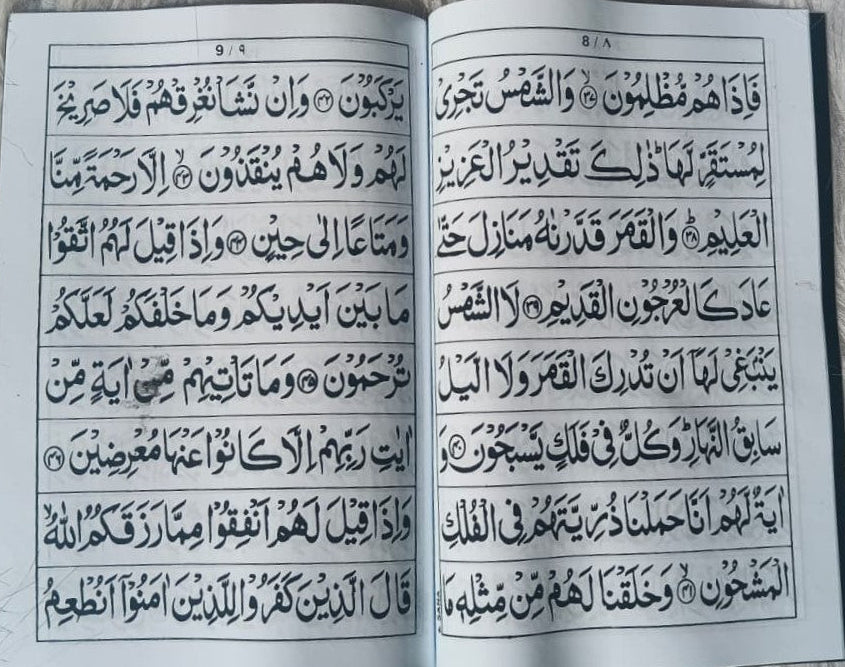 8/۸
فَاِذَا هُمْ مُّظْلِمُوْنَ ۙ﴿۳۷﴾ وَالشَّمْسُ تَجْرِیْ
لِمُسْتَقَرٍّ لَّهَا ؕ ذٰلِكَ تَقْدِیْرُ الْعَزِیْزِ
الْعَلِیْمِ ؕ﴿۳۸﴾ وَالْقَمَرَ قَدَّرْنٰهُ مَنَازِلَ حَتّٰی
عَادَ كَالْعُرْجُوْنِ الْقَدِیْمِ ﴿۳۹﴾ لَا الشَّمْسُ
یَنْۢبَغِیْ لَهَاۤ اَنْ تُدْرِكَ الْقَمَرَ وَلَا الَّیْلُ
سَابِقُ النَّهَارِ ؕ وَكُلٌّ فِیْ فَلَكٍ یَّسْبَحُوْنَ ﴿۴۰﴾ وَ
اٰیَةٌ لَّهُمْ اَنَّا حَمَلْنَا ذُرِّیَّتَهُمْ فِی الْفُلْكِ
الْمَشْحُوْنِ ۙ﴿۴۱﴾ وَخَلَقْنَا لَهُمْ مِّنْ مِّثْلِهٖ مَا
9/۹
یَرْكَبُوْنَ ﴿۴۲﴾ وَاِنْ نَّشَاْ نُغْرِقْهُمْ فَلَا صَرِیْخَ
لَهُمْ وَلَا هُمْ یُنْقَذُوْنَ ۙ﴿۴۳﴾ اِلَّا رَحْمَةً مِّنَّا
وَمَتَاعًا اِلٰی حِیْنٍ ﴿۴۴﴾ وَاِذَا قِیْلَ لَهُمُ اتَّقُوْا
مَا بَیْنَ اَیْدِیْكُمْ وَمَا خَلْفَكُمْ لَعَلَّكُمْ
تُرْحَمُوْنَ ﴿۴۵﴾ وَمَا تَاْتِیْهِمْ مِّنْ اٰیَةٍ مِّنْ
اٰیٰتِ رَبِّهِمْ اِلَّا كَانُوْا عَنْهَا مُعْرِضِیْنَ ﴿۴۶﴾
وَاِذَا قِیْلَ لَهُمْ اَنْفِقُوْا مِمَّا رَزَقَكُمُ اللّٰهُ ۙ
قَالَ الَّذِیْنَ كَفَرُوْا لِلَّذِیْنَ اٰمَنُوْۤا اَنُطْعِمُ